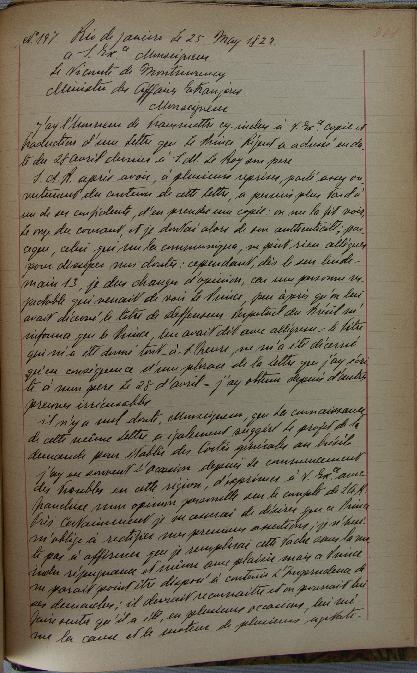 N° 197 Rio de Janeiro le 25 May 1822
a S. Ex.ce Monseigneur
Le Vicomte de Montmorency
Ministre des Affaires Etrangères
Monseigneur
J'ay l'honneur de transmettre cy-inclus à V. Ex.ce copie et
traduction d'une lettre que le Prince Régent a adressé en da-
te du 28 avril dernier à S. M. le Roy son père
S. A. R. après avoir, à plusieurs reprises, parlé avec ou-
vertement du contenu de cette lettre, a permis plus tard à
un de ses confidents, d'en prendre une copie: on me la fit voir
le onze du courant, et je doutai alors de son authenticité; par-
ceque, celui qui me la communiqua, ne peut rien alléguer
pour dissiper mes doutes: cependant, dès le surlende-
main 13, je dus changer d'opinion, car une personne res-
pectable qui venait de voir le Prince, peu après qu'on lui
avait décerné le titre de deffenseur perpetuel du Brésil m'
informa que le Prince, lui avait dit avec allégresse: le titre
qui m'a été donné tout à l'heure, ne m'a été décerné
qu'en conséquence d'une phrase de la lettre que j'ay écri-
te à mon père le 28 d'avril – j'ay obtenu depuis d'autres
preuves irrécusables
il n'y a nul doute, Monseigneur, que la connaissance
de cette même lettre a également suggéré le projet de la
demande pour établir des Cortès générales au Brésil
j'ay eu souvent l'occasion depuis le commencement
des troubles en cette région, d'exprimer à V. Ex.ce avec
franchise mon opinion personnelle sur le compte de S. A. R.
très certainement je ne cesserai de désirer que ce Prince
m'oblige à rectifier mes premières assertions; je n'hesi-
te pas à affirmer que je remplirai cette tâche sans la moindre
répugnance et même avec plaisir mais ce Prince
ne parait point être disposé à contenir l'imprudence de
ses demandes; il devrait reconnaître et on pourrait lui
faire sentir qu'il a été, en plusieurs occasions, lui mê-
me la cause et le moteur de plusieurs agitati-